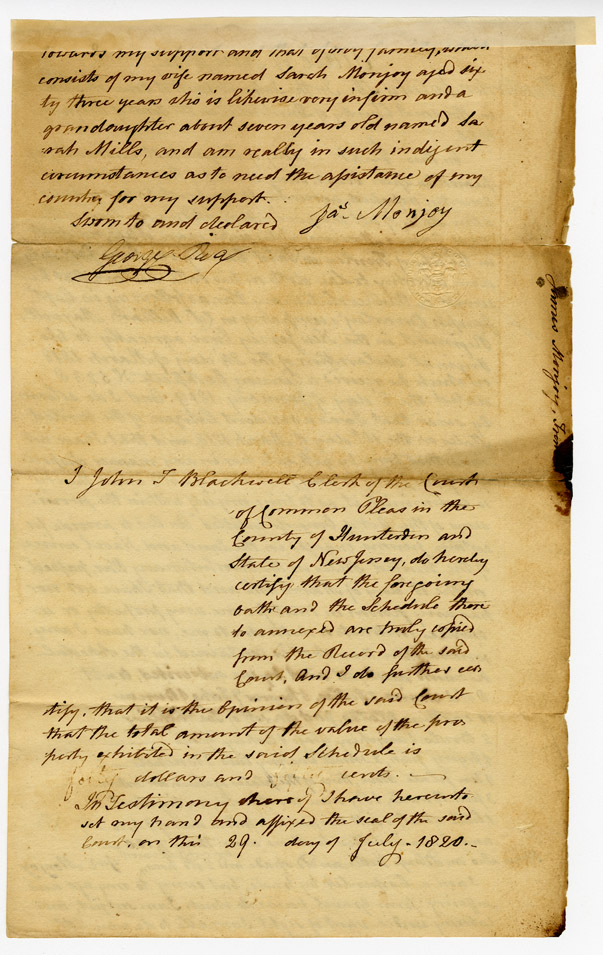 towards my support and that of my family, which
consists of my wife named Sarah Monjoy aged six
ty three years she is likewise very infirm and a
grandaughter about seven years old named Sa
rah Mills, and am really in such indigent
circumstances as to need the assistance of my
country for my support.
Sworn to and declared Jas. Monjoy
George Rea
James Monjoy,
I John T Blackwell Clerk of the Court
of Common Pleas in the
County of Hunterdon and
State of New Jersey, do hereby
certify that the foregoing
oath and the Schedule there
to annexed are truly copied
from the Record of the said
Court, And I do further cer
tify, that it is the Opinion of the said Court
that the total amount of the value of the pro
perty exhibited in the said Schedule is
forty dollars and cents. —
In Testimony whereof I have hereunto
set my hand and affixed the seal of the said
Court, on this 29. day of July - 1820.-